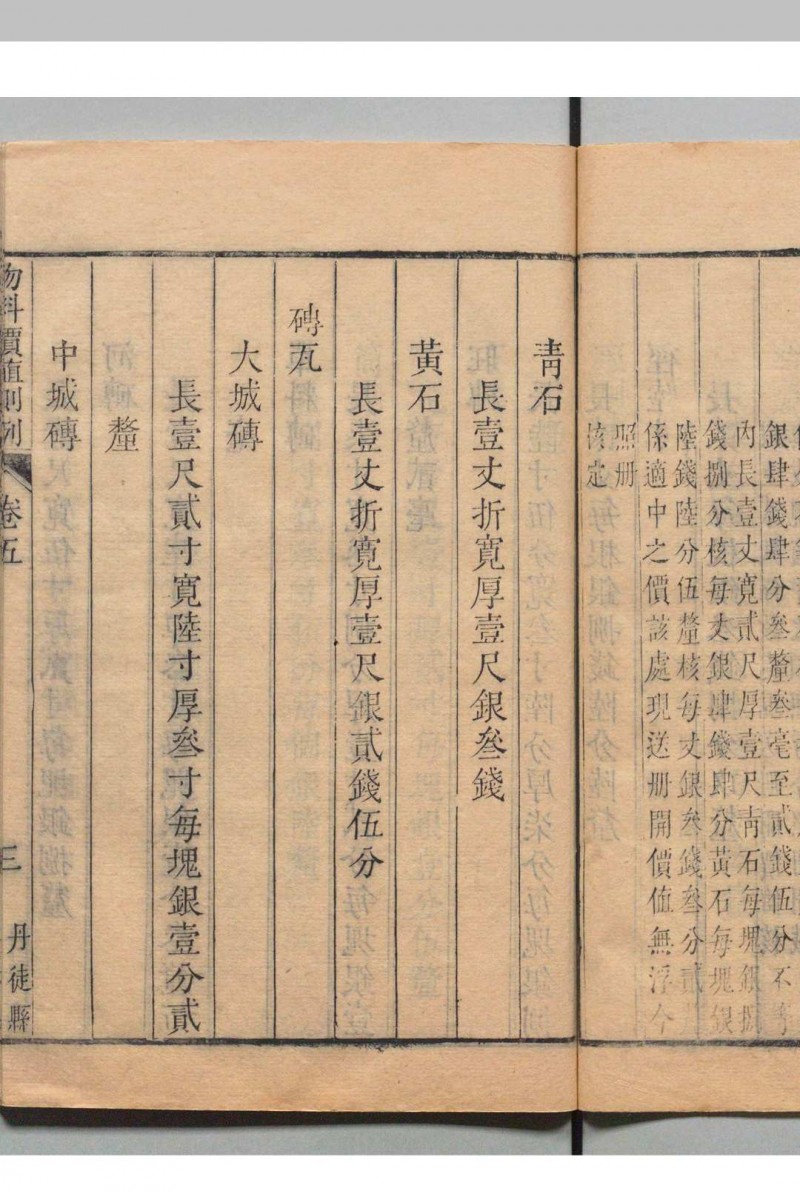 銀肆錢肆分叁釐叁毫至貳錢伍分不等
內長壹丈寬貳尺厚壹尺靑石每塊銀捌
錢捌分核每丈銀肆錢肆分黃石每塊銀
陸錢陸分伍釐核每丈銀叁錢叁分貳
係適中之價該處現送册開價值無浮今
照册
核定
靑石
長壹丈折寬厚壹尺銀叁錢
黃石
長壹丈折寬厚壹尺銀貳錢伍分
磚瓦
大城磚
長壹尺貳寸寬陸寸厚叁寸每塊銀壹分貳
釐
中城磚
物料價值則例 卷五 三 丹徒縣